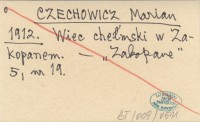 CZECHOWICZ Marian
1912. Wiec chełmski w Za-
kopanem. — „Zakopane"
5, nr 19.